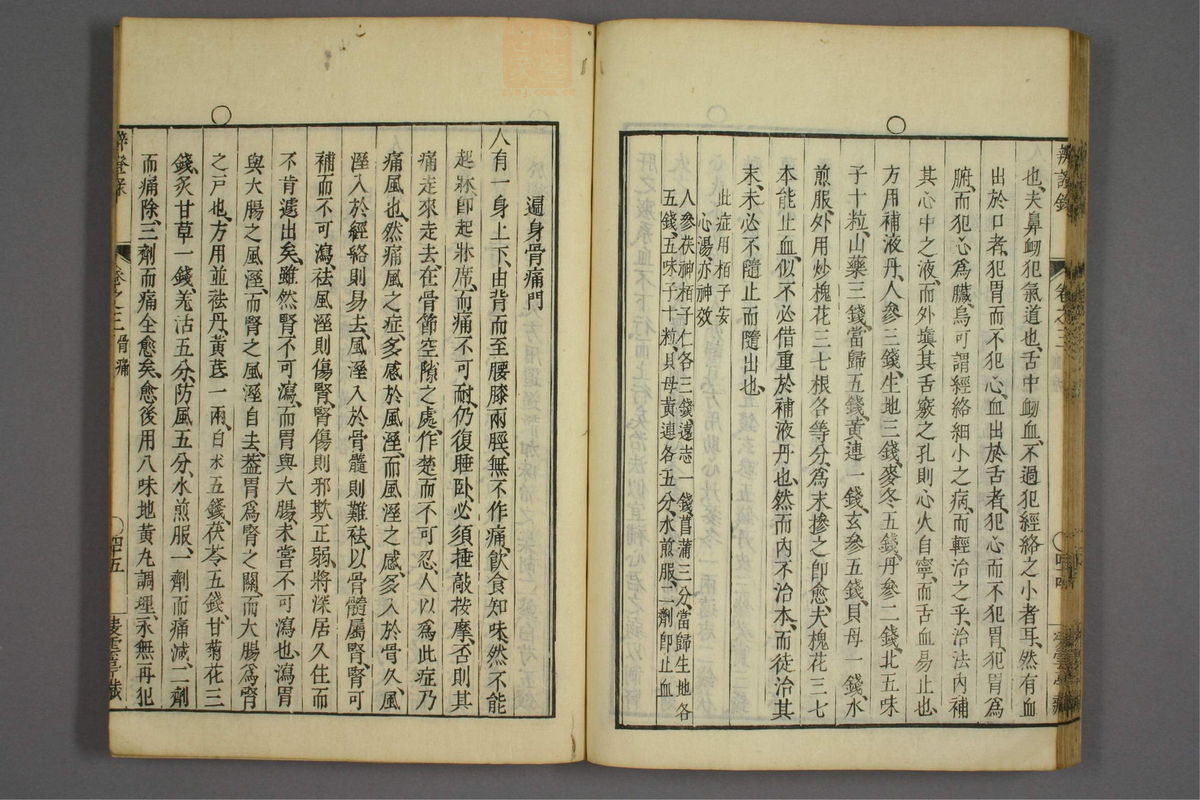 辨證錄
卷之三
也、夫鼻衂犯氣道也、舌中衂血、不過犯經絡之小者耳、然有血
出於口者、犯胃而不犯心、血出於舌者、犯心而不犯胃、犯胃為
腑、而犯心為臟、烏可謂經絡細小之病、而輕治之乎、治法內補
其心中之液、而外填其舌竅之孔、則心火自寧、而舌血易止也、
方用補液丹、人參三錢、生地三錢、麥冬五錢、丹參二錢、北五味
子十粒、山藥三錢、當歸五錢、黃連一錢、玄參五錢、貝母一錢、水
煎服、外用炒槐花三七根各等分、為末摻之、即愈、夫槐花三七
本能止血、似不必借重於補液丹也、然而內不治本、而徒治其
末、未必不隨止而隨出也、
此症用栢子安
心湯亦神效
人參茯神栢子仁各三錢、遠志一錢、菖蒲三分、當歸生地各
五錢、五味子十粒、貝母黃連各五分、水煎服、二劑即止血
遍身骨痛門
人有一身上下、由背而至腰膝兩脛、無不作痛、飲食知味、然不能
起牀、即起牀席、而痛不可耐、仍復睡卧、必須捶敲按摩、否則其
痛走來走去、在骨節空隙之處、作楚而不可忍、人以為此症乃
痛風也、然痛風之症、多感於風溼、而風溼之感、多入於骨久、風
溼入於經絡則易去、風溼入於骨髓則難祛、以骨髓屬腎、腎可
補而不可瀉、祛風溼則傷腎、腎傷則邪欺正弱、將深居久住而
不肯遽出矣、雖然腎不可瀉、而胃與大腸、未嘗不可瀉也、瀉胃
與大腸之風溼、而腎之風溼自去、蓋胃為腎之關、而大腸為腎
之戶也、方用並祛丹、黃芪一兩、白朮五錢、茯苓五錢、甘菊花三
錢、炙甘草一錢、羌活五分、防風五分、水煎服、一劑而痛減、二劑
而痛除、三劑而痛全愈矣、愈後用八味地黃丸調理、永無再犯
卷之三 骨痛
四十五